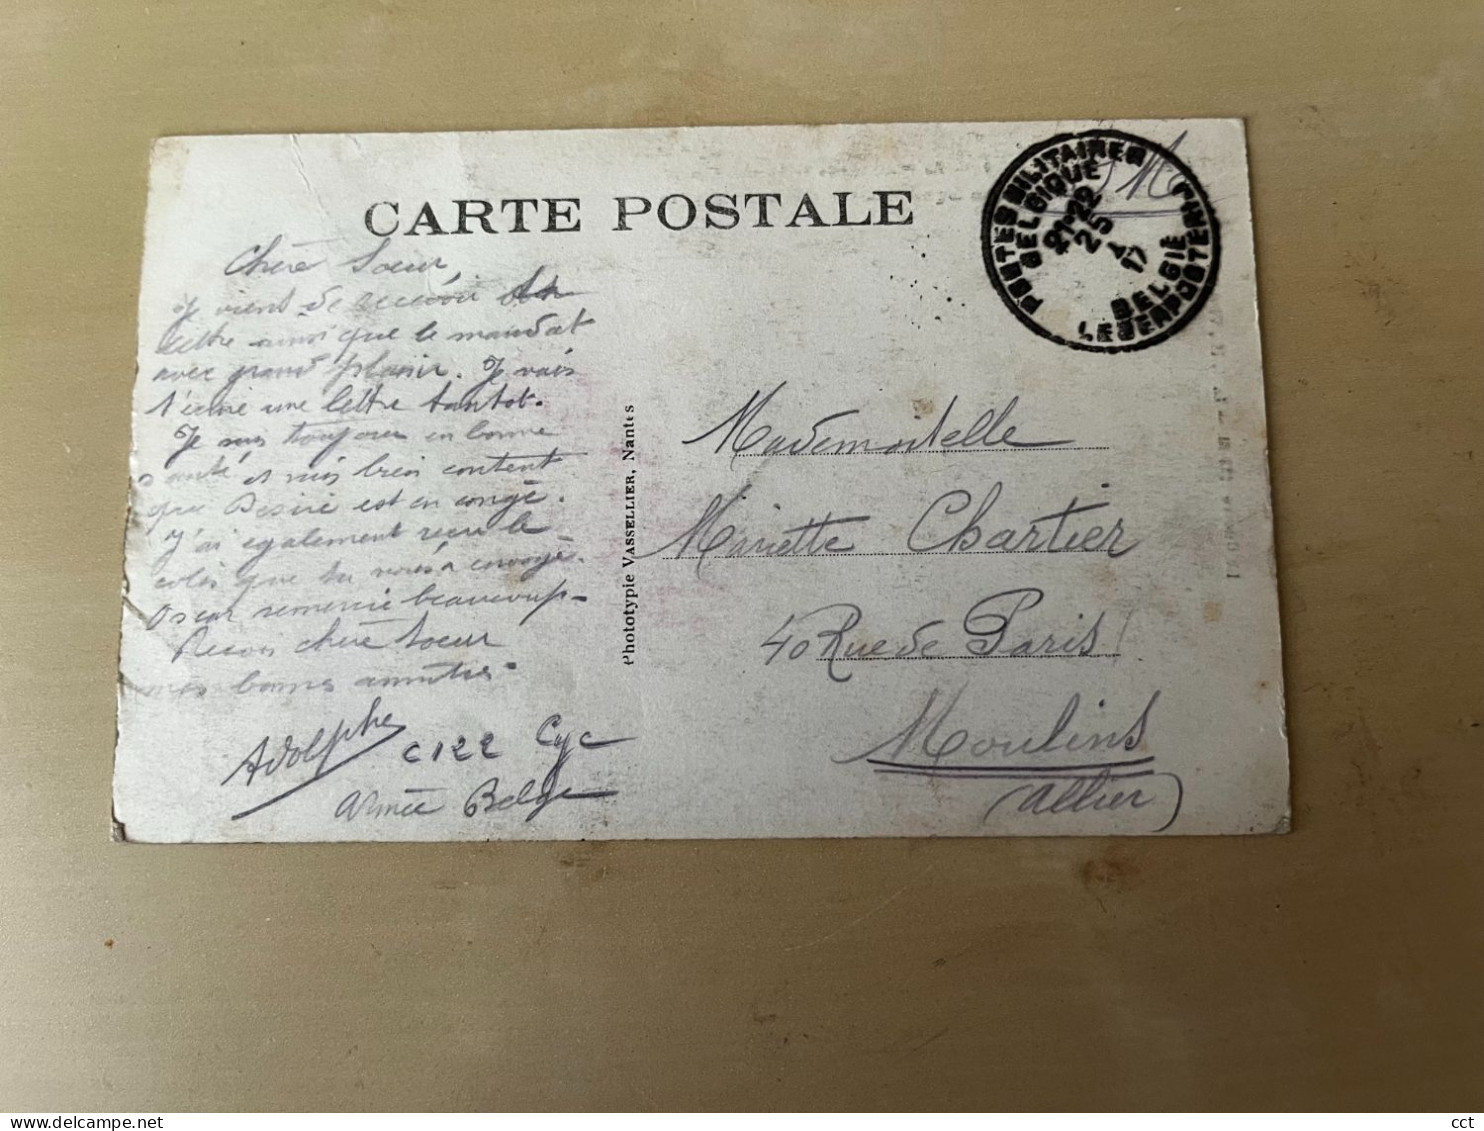 CARTE POSTALE
S M
POSTES MILITAIRES
BELGIQUE
21-22
25
17
BELGIE
LEGERPOSTERIJ
Chère Soeur,
Je viens de recevoir
lettre ainsi que le mandat
avec grand plaisir. Je vais
t'écrire une lettre tantot.
Je suis toujours en bonne
santé et suis bien content
que Desiré est en congé.
J'ai egalement recu le
colis que tu envoyé.
Oscar remercie beaucoup
Recois chère soeur
mes bonnes amitiés
Adolphe C122 Cyc
Armée Belge
Phototypie VASSELLIER, Nantes
Mademoiselle
Mariette Chartier
40 Rue de Paris
Moulins
(Allier)
cct